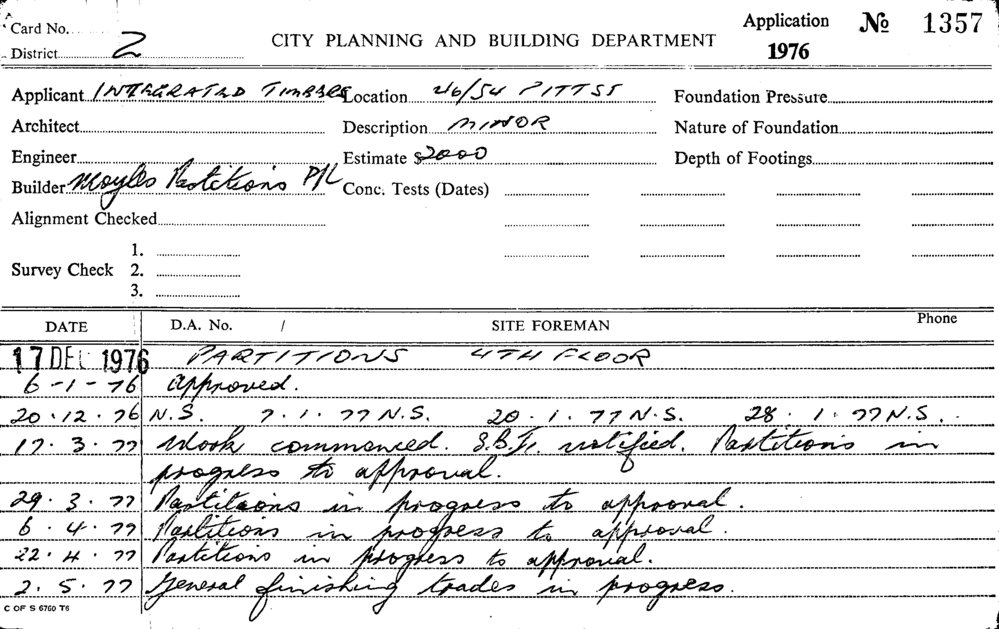 Card No.
District 2
CITY PLANNING AND BUILDING DEPARTMENT
Application № 1357
1976
Applicant INTEGRATED TIMBERS Location 46/54 PITT ST Foundation Pressure
Architect Description MINOR Nature of Foundation
Engineer Estimate $2000 Depth of Footings
Builder Moyles Partitions P/L Conc. Tests (Dates)
Alignment Checked
1.
Survey Check 2.
3.
DATE D.A. No. / SITE FOREMAN Phone
17 DEC 1976 PARTITIONS 4TH FLOOR
6-1-76 Approved.
20.12.76 N.S. 7.1.77 N.S. 20.1.77 N.S. 28.1.77 N.S.
17.3.77 Work commenced. notified. Partitions in
progress to approval.
29.3.77 Partitions in progress to approval.
6.4.77 Partitions in progress to approval.
22.4.77 Partitions in progress to approval.
2.5.77 General finishing trades in progress.
C OF S 6760 T6